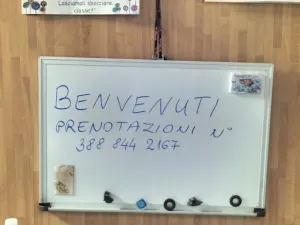 Lasciamoli sbocciare
BENVENUTI
PRENOTAZIONI N°
388 844 2167